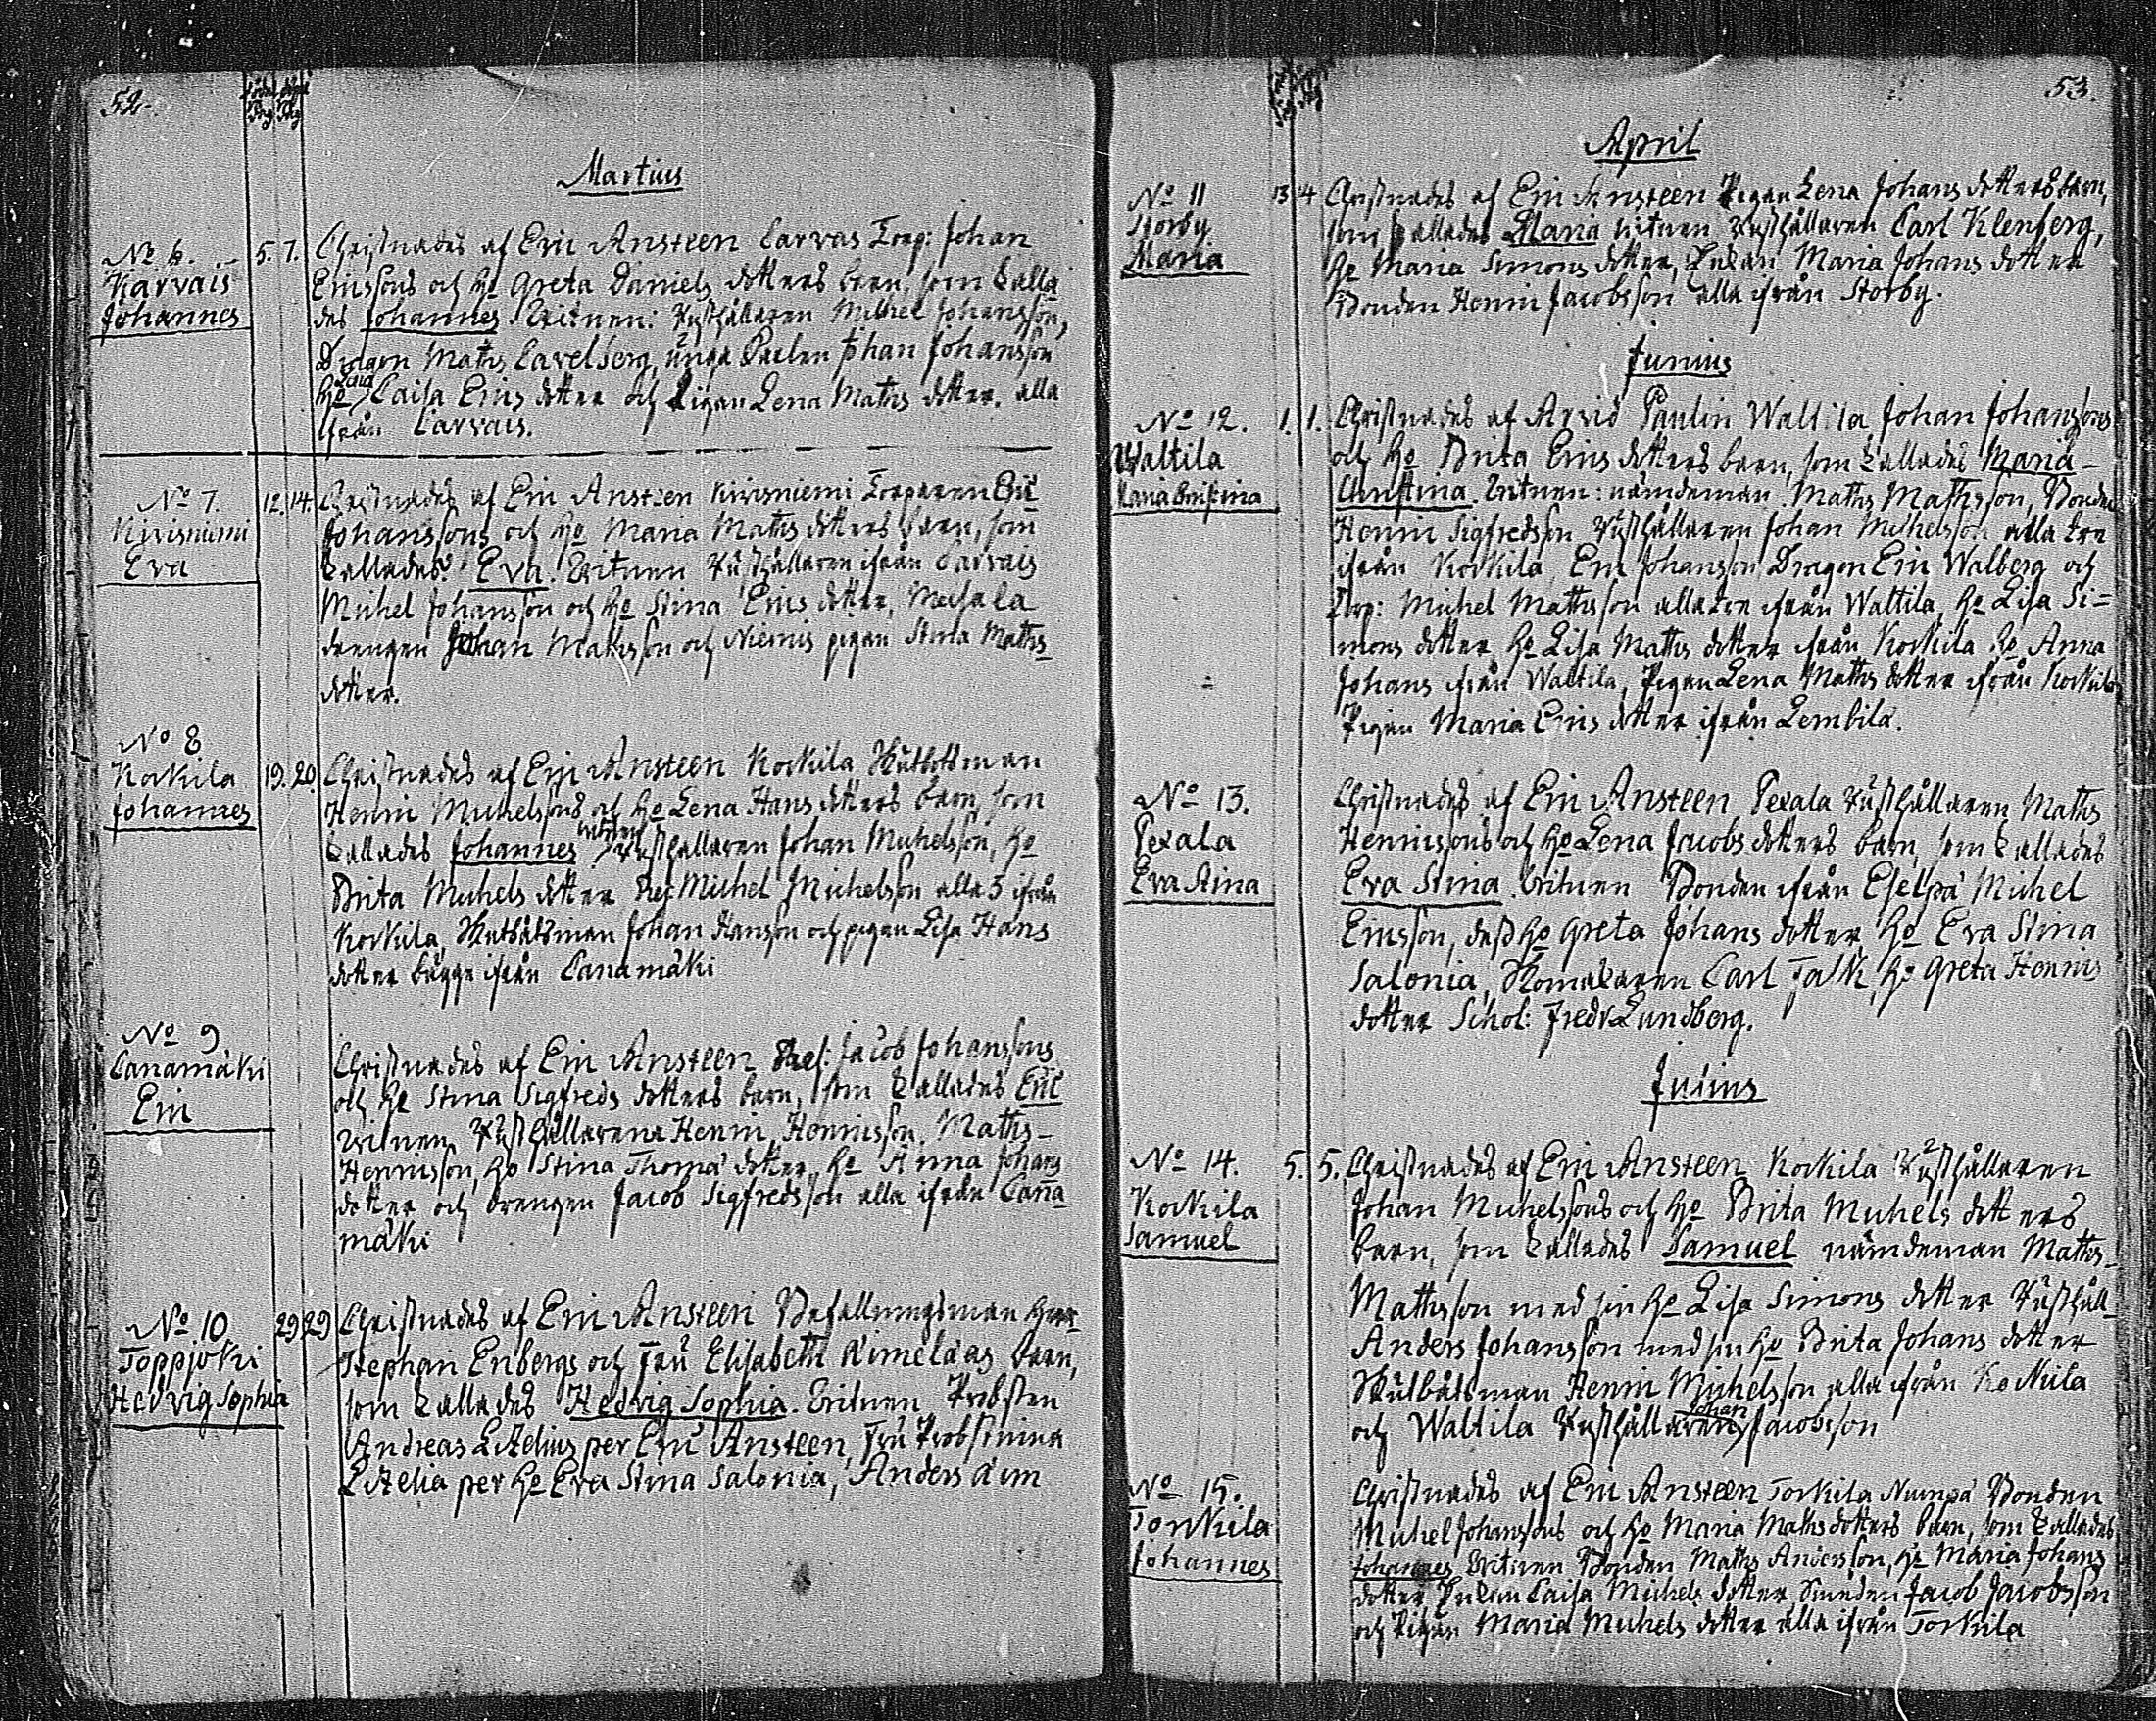 52.
Martius
No 6.
Karvais
Johannes
5. 7. Christnades af Eric Ansteen Carvas Torp: Johan
Ericssons och Ho Greta Daniels dotters barn, som kalla
des Johannes Witnen: Rusthållaren Michel Johansson,
Dragon Maths Cavelberg, unga Karlen Johan Johansson
Ho Caisa Erics dotter och Pigan Lena Maths dotter. alla
ifrån Carvais.
No 7.
Kirisniemi
Eva
12. 14. Christnades af Eric Ansteen Kirisniemi Torparen Eric
Johanssons och Ho Maria Maths dotters barn, som
kallades Eva. Witnen Rusthållaren ifrån Carvais
Michel Johansson och Ho Stina Erics dotter, Maisala
drengen Johan Mathsson och Niemis pigan Stina Maths
dotter.
No 8
Korkila
Johannes
19. 20. Christnades af Eric Ansteen Korkila Skutbottsman
Henric Michelsons och Ho Lena Hans dotters barn, som
kallades Johannes witnen Rusthållaren Johan Michelsson, Ho
Brita Michels dotter Michel Michelsson alla 3 ifrån
Korkila, Skutbåtsman Johan Hansson och pigan Lisa Hans
dotter bägge ifrån Canamäki
No 9
Canamäki
Eric
Christnades af Eric Ansteen Jacob Johanssons
och Ho Stina Sigfreds dotters barn, som kallades Eric
witnen Rusthållarena Henric Henricsson, Maths
Henricsson, Ho Stina Thoma dotter, Ho Anna Johans
dotter och drengen Jacob Sigfredsson alla ifrån Cana
mäki
No. 10
Toppjoki
Hedvig Sophia
29 29 Christnades af Eric Ansteen Befallningsman Herr
Stephan Enbergs och Fru Elisabeth Aimelaas barn,
som kallades Hedvig Sophia. Witnen Probsten
Andreas Lilelius per Eric Ansteen, Fru Probstinna
Lilelia per Ho Eva Stina Salonia, Anders Aim
53.
April
No 11
Storby
Maria
13 14 Christnades af Eric Ansteen Pigan Lena Johans dotters barn,
som kallades Maria witnen Rusthållaren Carl Klenberg,
Ho Maria Simons dotter, Enkan Maria Johans dotter
Bonden Henric Jacobsson alla ifrån Storby.
Junius
No 12.
Waltila
Maria Christina
1. 1. Christnades af Arvid Paulin Waltila Johan Johanssons
och Ho Brita Erics dotters barn, som kallades Maria
Christina. Witnen: nämdeman Maths Mathsson, Bonden
Henric Sigfredsson Rusthållaren Johan Michelsson alla tre
ifrån Korkila, Eric Johansson Dragon Eric Walberg och
Torp: Michel Mathsson alla tre ifrån Waltila, Ho Lisa Si=
mons dotter Ho Lisa Maths dotter ifrån Korkila Ho Anna
Johans ifrån Waltila, Pigan Lena Maths dotter ifrån Korkila
Pigan Maria Erics dotter ifrån Lembila.
No 13.
Pexala
Eva Stina
Christnades af Eric Ansteen Pexala Rusthållaren Maths
Henricssons och Ho Lena Jacobs dotters barn, som kallades
Eva Stina. Witnen Bonden ifrån Eselpä Michel
Ericsson, dess Ho Greta Johans dotter, Ho Eva Stina
Salonia, Skomakaren Carl Falk, Ho Greta Henrics
dotter Schol: Fredr Lundberg.
Julius
No 14.
Korkila
Samuel
5. 5. Christnades af Eric Ansteen Korkila Rusthållaren
Johan Michelssons och Ho Brita Michels dotters
barn, som kallades Samuel nämdeman Maths
Mathsson med sin Ho Lisa Simons dotter Rusthåll
Anders Johansson med sin Ho Brita Johans dotter
Skutbåtsman Henric Michelsson alla ifrån Korkila
och Waltila Rusthållaren Johan Jacobsson
No 15.
Torkila
Johannes
Christnades af Eric Ansteen Torkila Numpä Bonden
Michel Johanssons och Ho Maria Maths dotters barn, som kallades
Johannes Witnen Bonden Maths Andersson, Ho Maria Johans
dotter Enkan Caisa Michels dotter Smeden Jacob Jacobsson
och Pigan Maria Michels dotter alla ifrån Torkila